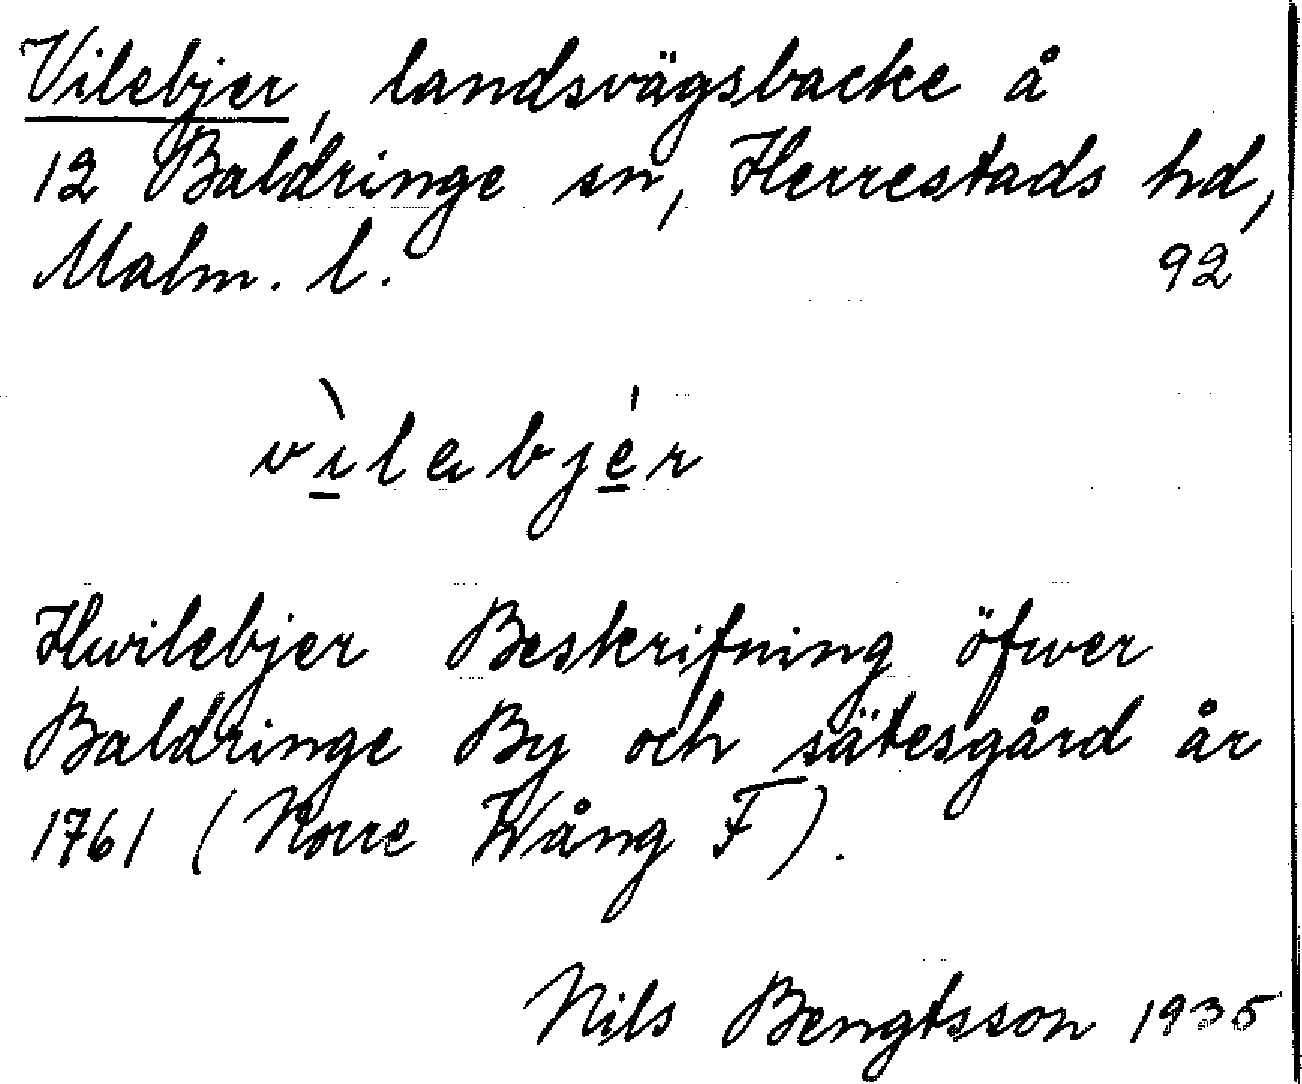 Vilebjer, landsvägsbacke å
12 Baldringe sn, Herrestads hd,
Malm. l. 92
vìlabjér
Hwilebjer Beskrifning öfwer
Baldringe By och sätesgård år
1761 (Norre Wång F).
Nils Bengtsson 1935